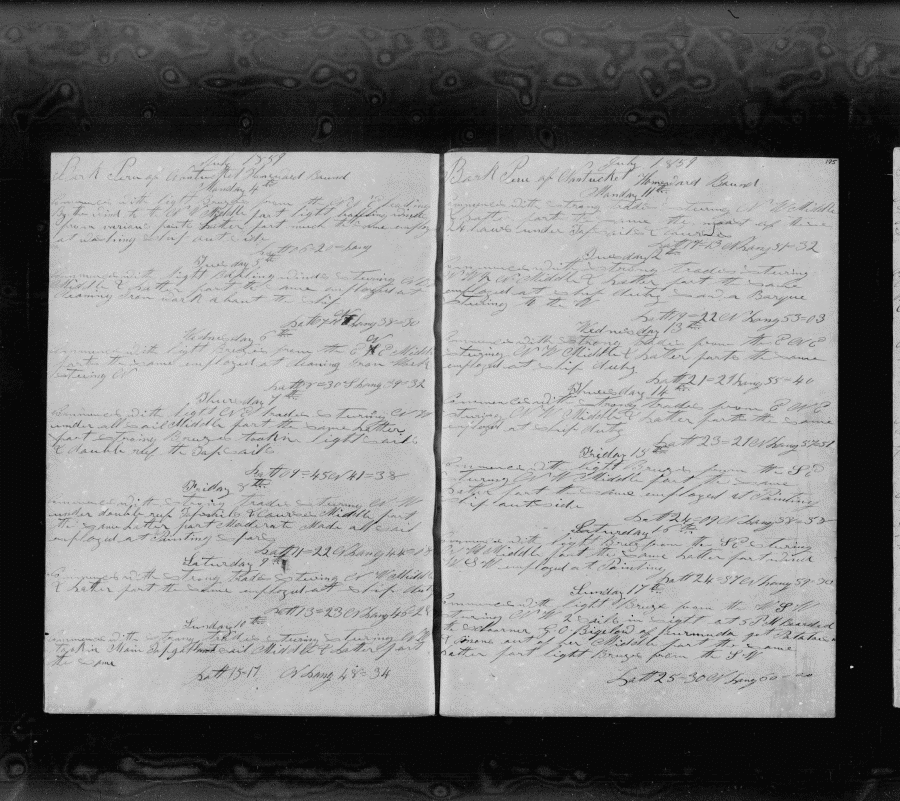 July 1859
Bark Peru of Nantucket Homeward Bound
Monday 4th
Commences with light Breezes from the
by the wind to the N W Middle part light baffling winds
from various parts Latter part much the same employed
at washing ship out side
Latt 06-20 Long
Tuesday 5th
Commences with light Baffling winds steering
Middle & Latter part the same employed at
cleaning Iron work about the ship
Long 38-30
Wednesday 6th
Commences with light Breezes from the E N E Middle
part the same employed at cleaning Iron Work
steering N
Latt 8-30 Long 39-32
Thursday 7th
Commences with light N E trades steering N W
under all sail Middle part the same Latter
part strong Breezes took in light sails
& double reef the Topsails
Latt 09-45 N 41-38
Friday 8th
Commences with strong trades steering N W
under double reef Topsails & Courses Middle part
the same Latter part Moderate Made all sail
employed at Painting spars
Latt 11-22 N Long 44-
Saturday 9th
Commences with strong trades steering N W Middle
& Latter part the same employed at ship duty
Latt 13-23 N Long 46-28
Sunday 10th
Commences with strong trades steering N W
took in Main Topgallant sail Middle & Latter part
the same
Latt 15-17 N Long 48-34
195
July 1859
Bark Peru of Nantucket Homeward Bound
Monday 11th
Commences with strong trades steering N W Middle
& Latter part the same the part of these
24 hours under Topsails & Courses
Latt 17-13 N Long 51-32
Tuesday 12th
Commences with strong trades steering
N W Middle & Latter part the same
employed at ship duty saw a Barque
steering to the W
Latt 19-22 N Long 53-03
Wednesday 13th
Commences with strong trades from the E N E
steering N W Middle & Latter parts the same
employed at ship duty
Latt 21-21 Long 55-40
Thursday 14th
Commences with strong trades from E N E
steering N W Middle & Latter parts the same
employed at ship duty
Latt 23-21 N Long 57-51
Friday 15th
Commences with light Breezes from the S E
steering N W Middle part the same
Latter part the same employed at Painting
ship out side
Latt 24-09 N Long 58-58
Saturday 16th
Commences with light Breezes from the S E steering
N W Middle part the same Latter part wind
W S W employed at Painting
Latt 24-51 N Long 59-
Sunday 17th
Commences with light Breeze from the W S W
steering N W 2 sails in sight at 5 P M boarded
the schooner G O Bigelow of Burmuda got Potatoes
& Onions part of these Middle part the same
Latter part light Breeze from the S W
Latt 25-30 N Long 60-00